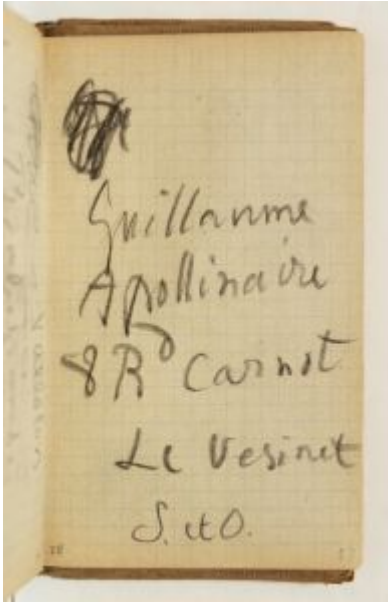 Guillaume
Apollinaire
8 R Carnot
Le Vesinet
S. et O.